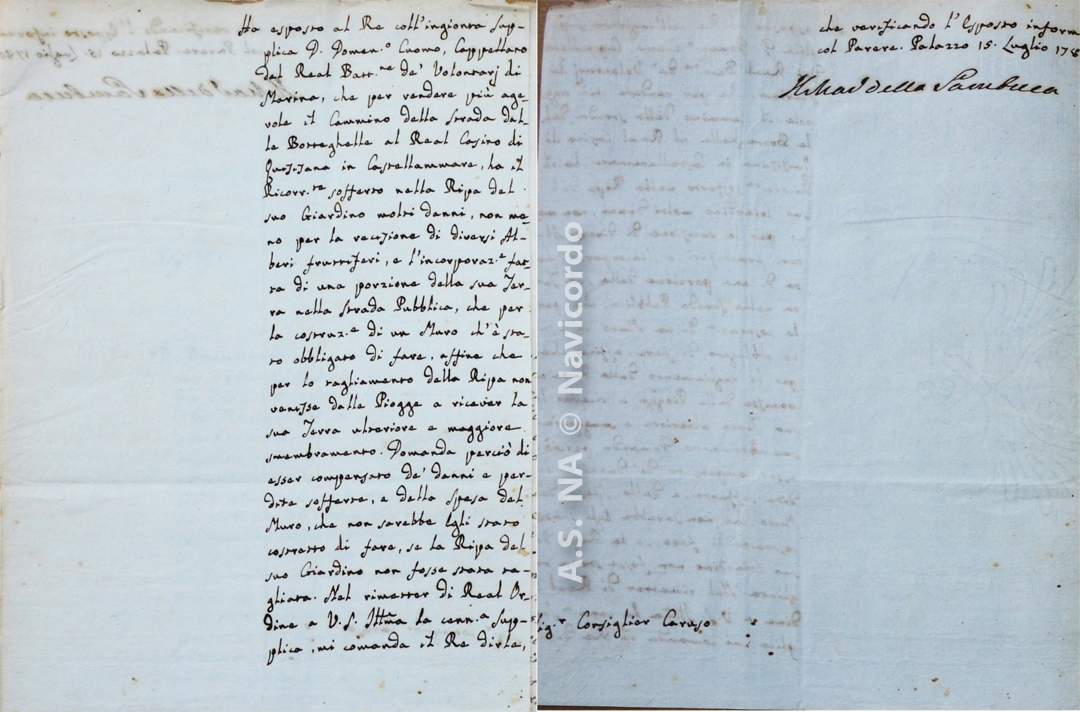 Ha esposto al Re coll'ingionta Sup-
plica D. Domen.º Cuomo, Cappellano
del Real Batt.ne de' Volontarj di
Marina, che per rendere più age-
vole il Cammino della Strada dal-
le Botteghelle al Real Casino di
Quisisana in Castellammare, ha il
Ricorr.te sofferto nella Ripa del
suo Giardino molti danni, non me-
no per la recisione di diversi Al-
beri fruttiferi, e l'incorporaz.e fat-
ta di una porzione della sua Ter-
ra nella strada Pubblica, che per
la costruz.e di un Muro ch'è sta-
to obbligato di fare, affine che
per lo tagliamento della Ripa non
venisse dalle Piogge a ricever la
sua Terra ulteriore e maggiore
smembramento. Domanda perciò di
esser compensato de' danni e per-
dite sofferte, e della spesa del
Muro, che non sarebbe Egli stato
costretto di fare, se la Ripa del
suo Giardino non fosse stata ta-
gliata. Nel rimetter di Real Or-
dine a V.S. Ill̃ma la cenn.a Sup-
plica, mi comanda il Re dirle,
che verificando l'Esposto inform
col Parere. Palazzo 15. Luglio 178
Il Mar.e della Sambuca
sig.r Consiglier Caruso
A.S. NA © Navicordo